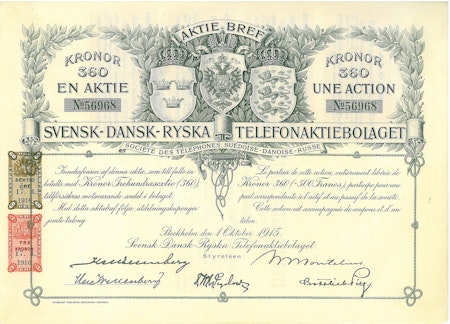 AKTIE BREF
KRONOR
360
EN AKTIE
No 56968
KRONOR
360
UNE ACTION
No 56968
SVENSK-DANSK-RYSKA TELEFONAKTIEBOLAGET
SOCIÉTÉ DES TÉLÉPHONES SUÉDOISE-DANOISE-RUSSE
Innehafvaren af denna aktie, som till fullo in-
betalts med Kronor Trehundrasextio (360),
tillförsäkras motsvarande andel i bolaget.
Med detta aktiebref följa utdelningskuponger
jemte talong.
Le porteur de cette action, entièrement libérée de
Kronor 360 (=500 Francs), participe pour une
part correspondante à l'actif et au passif de la société.
Cette action est accompagnée de coupons et d'un
talon.
Stockholm den 1 Oktober 1915.
Svensk-Dansk-Ryska Telefonaktiebolaget.
Styrelsen.
ÖRE
17. 
1916
TRE
KRONOR
17. 
1916